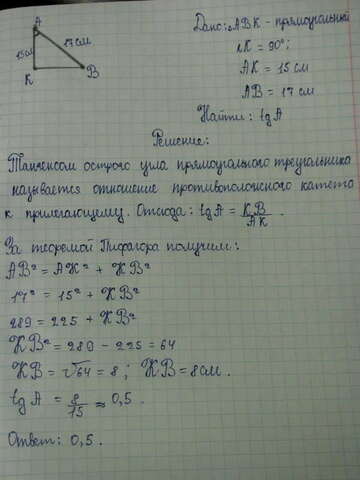 A
15см
17см
K
B
Дано: △ABK - прямоугольный
∠K = 90°;
AK = 15 см
AB = 17 см
Найти: tg A
Решение:
Тангенсом острого угла прямоугольного треугольника
называется отношение противоположного катета
к прилегающему. Отсюда: tg A = KB/AK.
За теоремой Пифагора получим:
AB² = AK² + KB²
17² = 15² + KB²
289 = 225 + KB²
KB² = 289 - 225 = 64
KB = √64 = 8; KB = 8 см.
tg A = 8/15 ≈ 0,5.
Ответ: 0,5.